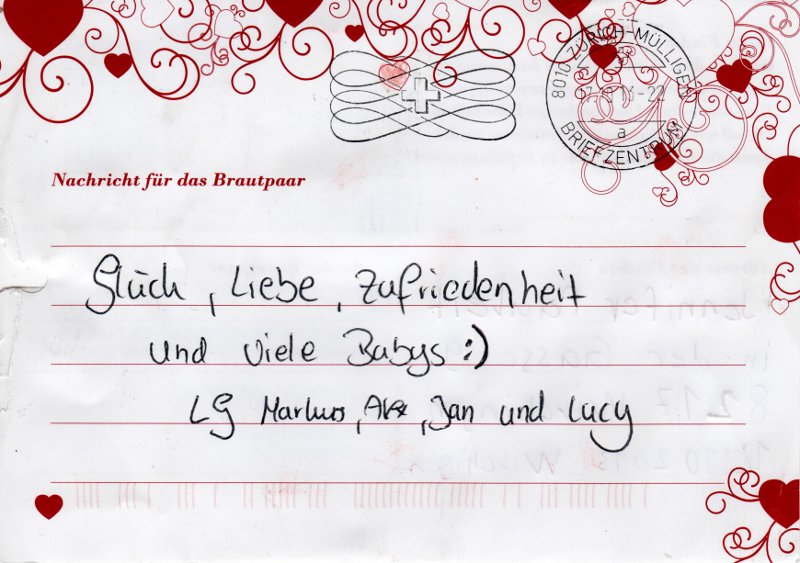 8010 ZÜRICH-MÜLLIGEN
BRIEFZENTRUM
a
Nachricht für das Brautpaar
Glück, Liebe, Zufriedenheit
und viele Babys :)
LG Markus, Alex, Jan und Lucy